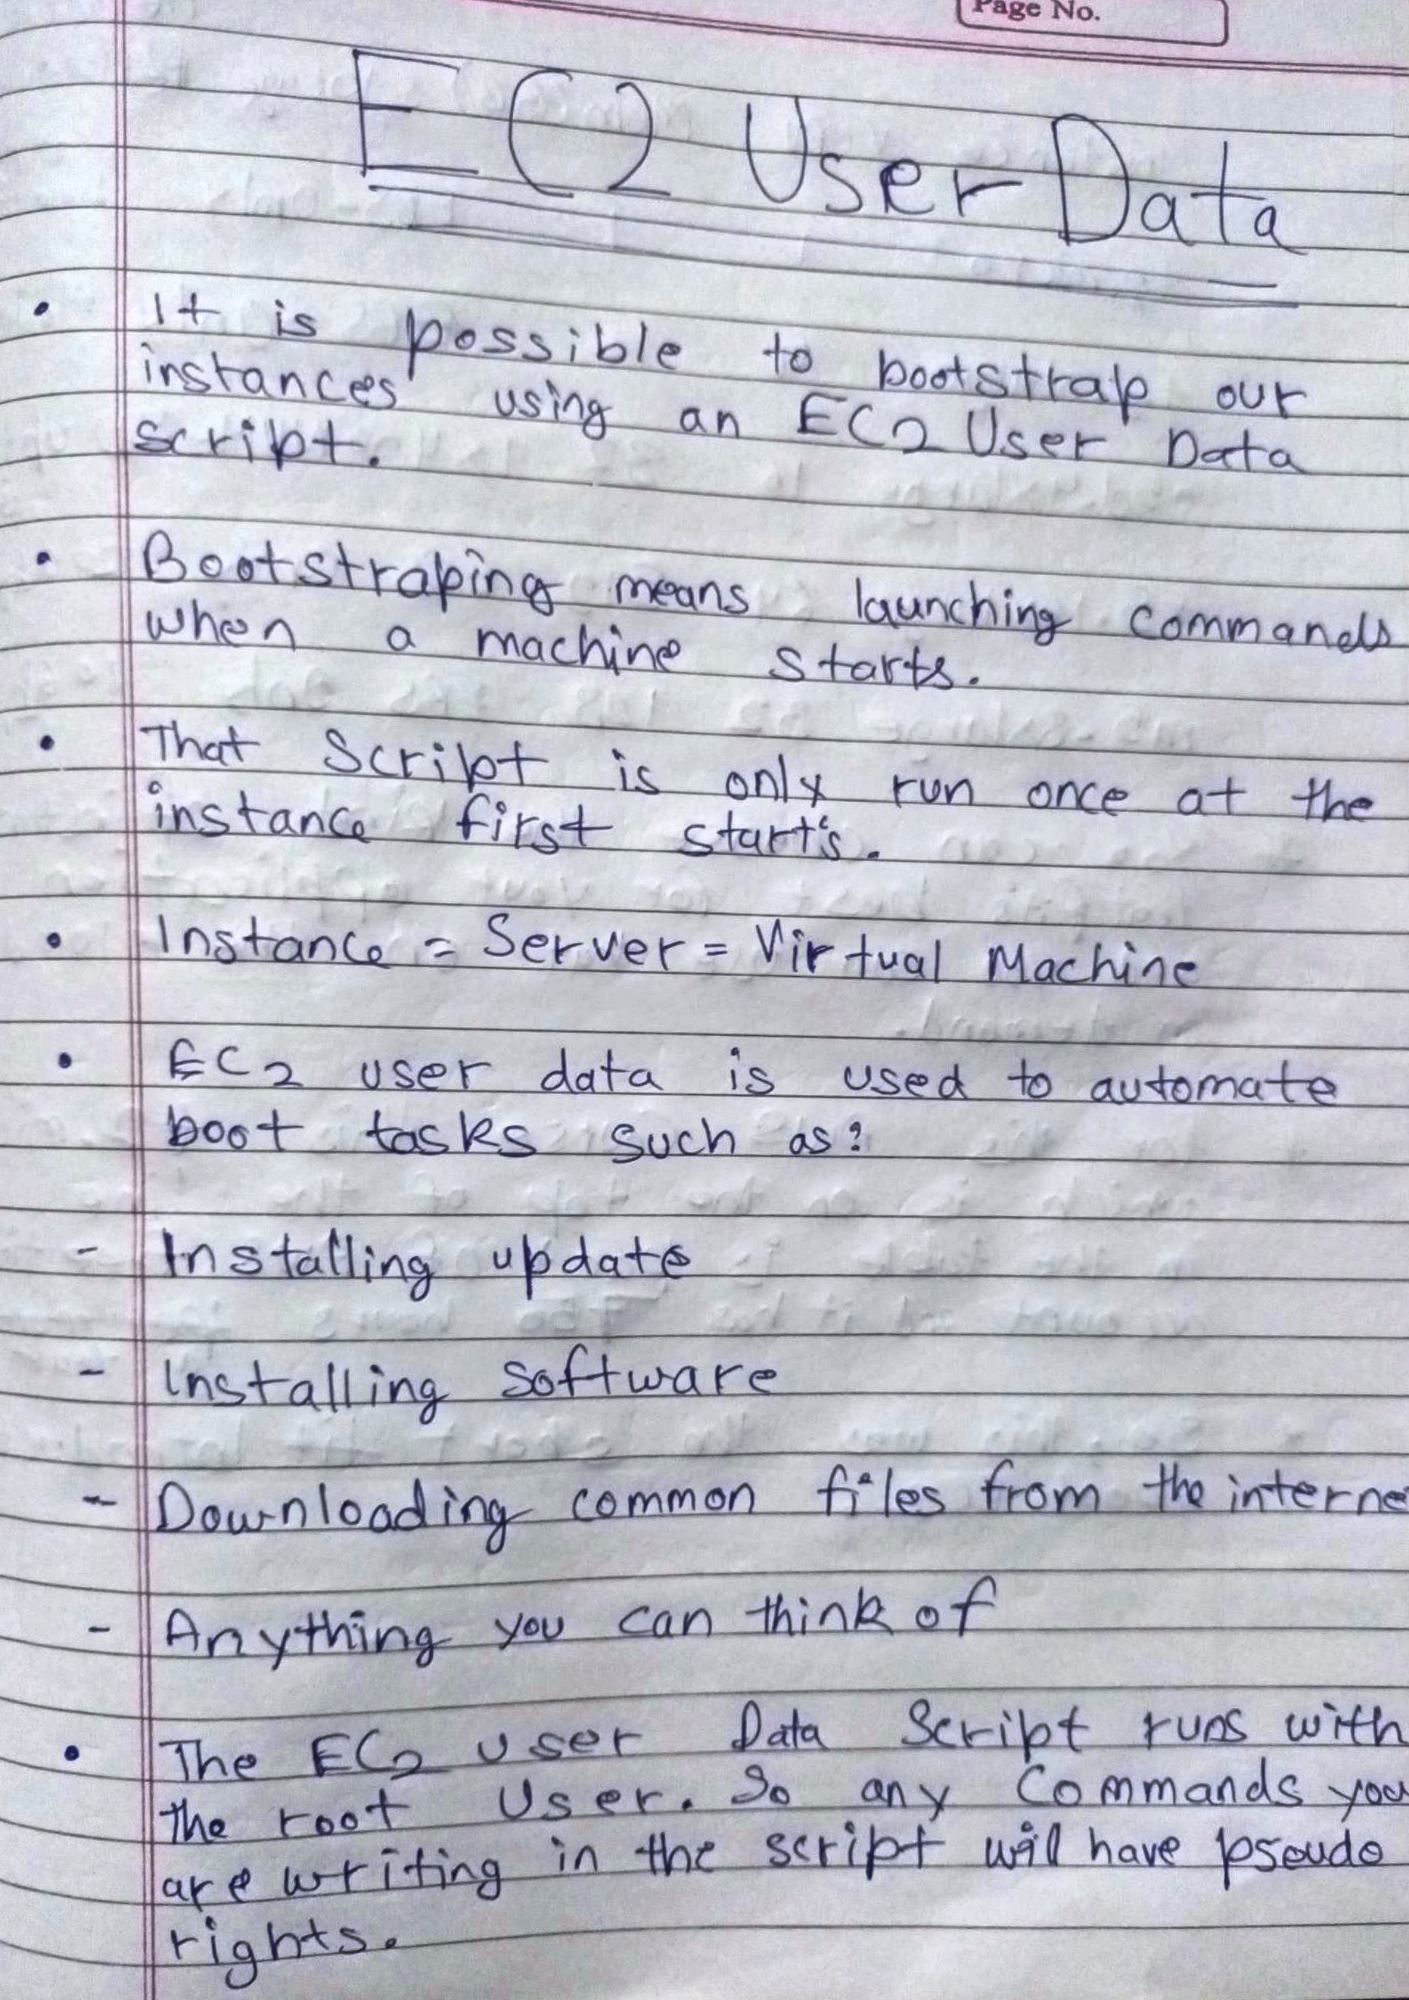 Page No.
EC2 User Data
• It is possible to bootstrap our
instances using an EC2 User Data
script.
• Bootstraping means launching commands
when a machine starts.
• That Script is only run once at the
instance first start's.
• Instance = Server = Virtual Machine
• EC2 user data is used to automate
boot tasks such as:
- Installing update
- Installing software
- Downloading common files from the interne
- Anything you can think of
• The EC2 user Data Script runs with
the root User. So any Commands you
are writing in the script will have pseudo
rights.